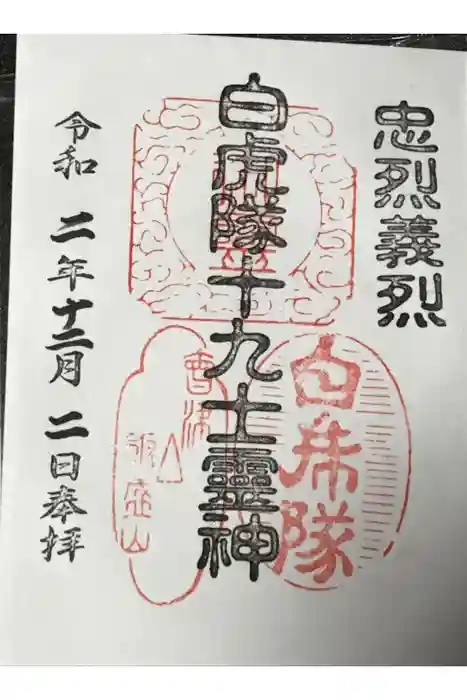 忠烈義烈
白虎隊十九士霊神
白虎隊
會津
飯盛山
令和 二年 十二月 二日 奉拝